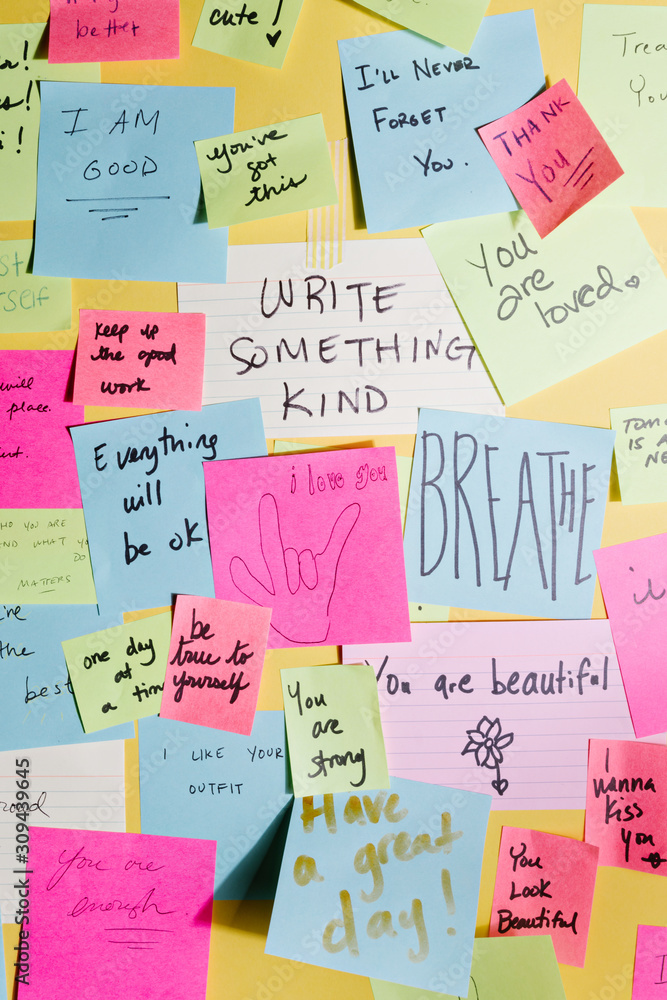 better
cute!
I'LL NEVER
FORGET
YOU.
THANK
YOU
I AM
GOOD
you've
got
this
You
are
loved.
WRITE
SOMETHING
KIND
Keep up
the good
work
will
place.
Everything
will
be ok
i love you
BREATHE
IS A
AND WHAT
DO
MATTERS
the
best
one day
at a
time
be
true to
yourself
You
are
strong
You are beautiful
I LIKE YOUR
OUTFIT
I
wanna
Kiss
You
Have
a great
day!
You
Look
Beautiful
You are
enough.
Adobe Stock | #309439645